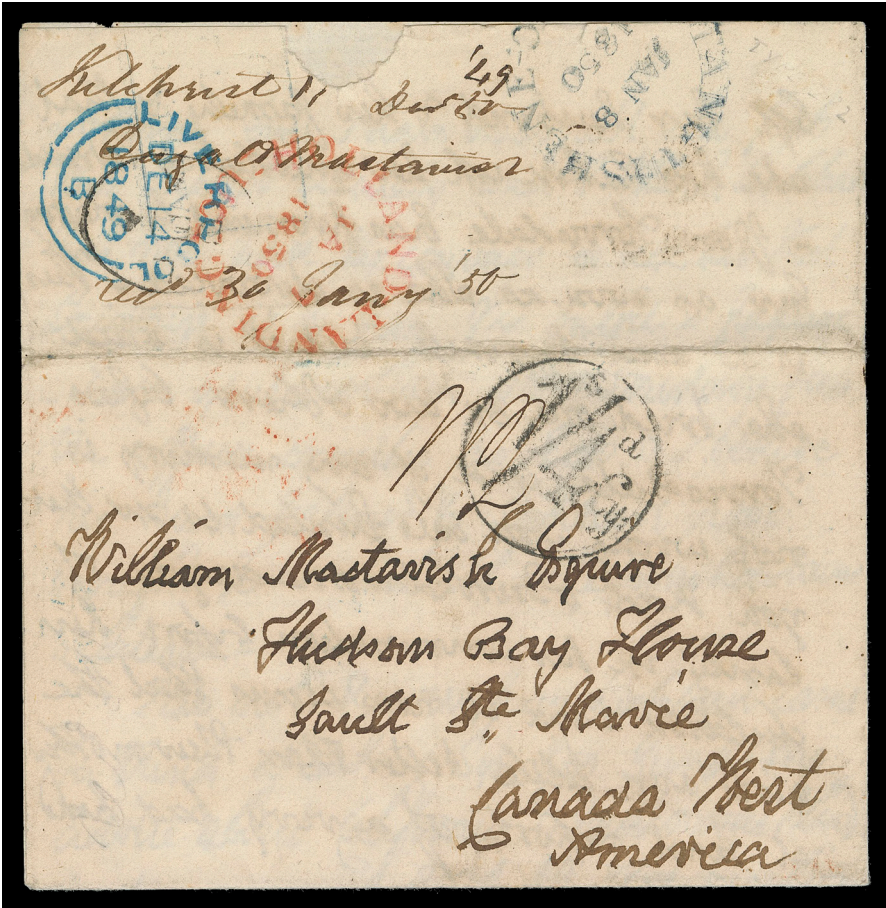 Kilchrist 11 Decbr '49
Dugald Mactavish
recd 30 Jany '50
LIVERPOOL
DE 14
1849
B
JA
1850
JAN 8
1850
1/2
William Mactavish Esquire
Hudson Bay House
Sault Ste. Marie
Canada West
America